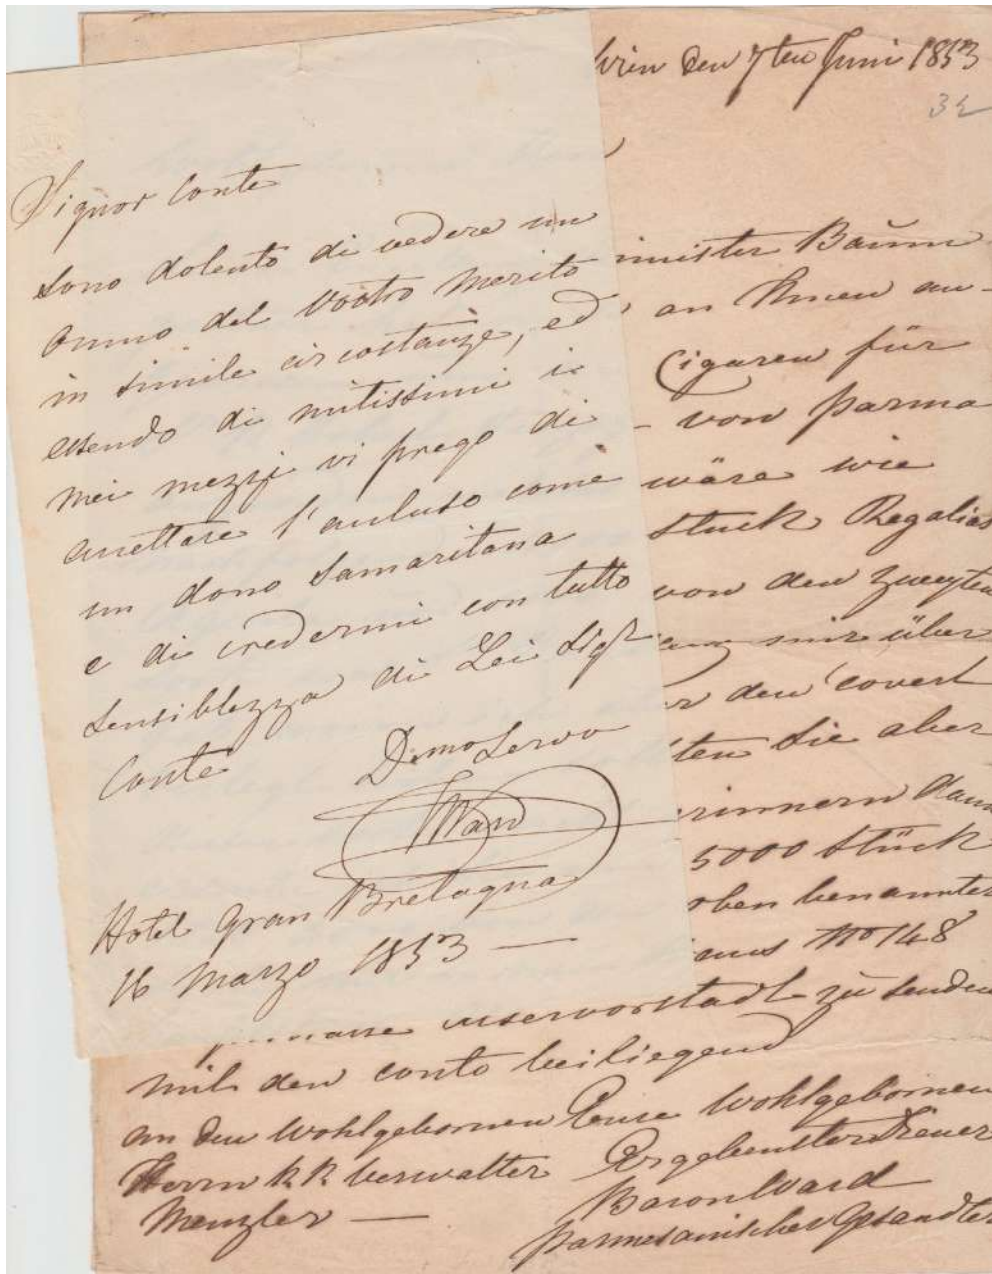 Signor Conte
Sono dolento di vedere un
omno del vostro merito
in simile circostanze, ed
essendo di mitissimi i
mei mezzi vi prego di
accettare l'accluso come
un dono Samaritana
e di credermi con tutto
Sensiblezza di Lei Sigr
Conte
Dmo Servo
TWard
Hotel Gran Bretagna
16 Marzo 1853 —
Wien den 7ten Juni 1853
34
minister Baum
an Ihnen an-
Cigaren für
von Parma
wäre wie
Stuck Regalias
von den Zweyten
mir über
den covert
ten Sie aber
erinnern dann
5000 Stück
oben benannter
No 148
vorstadt zu senden
mit den conto beiliegend
an den Wohlgebornen Eure Wohlgebornen
Herrn kk Verwalter Ergebenster Diener
Menzler — Baron Ward
Parmesanischer Gesandter